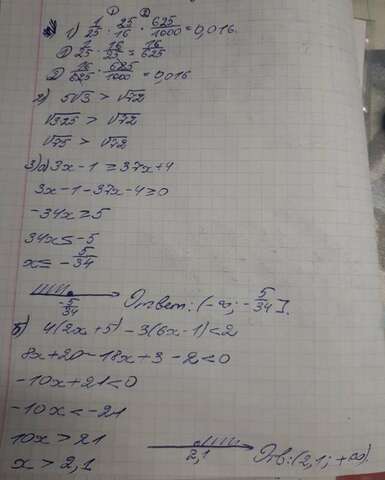 ① ②
1) 1/25 · 25/16 · 625/1000 = 0,016.
① 1/25 · 16/25 = 16/625
② 16/625 · 625/1000 = 0,016
2) 5√3 > √72
√325 > √72
√75 > √72
3) а) 3x - 1 ≥ 37x + 4
3x - 1 - 37x - 4 ≥ 0
-34x ≥ 5
34x ≤ -5
x ≤ -5/34
-5/34 Ответ: (-∞; -5/34].
б) 4(2x + 5) - 3(6x - 1) < 2
8x + 20 - 18x + 3 - 2 < 0
-10x + 21 < 0
-10x < -21
10x > 21
2,1 Отв: (2,1; +∞).
x > 2,1